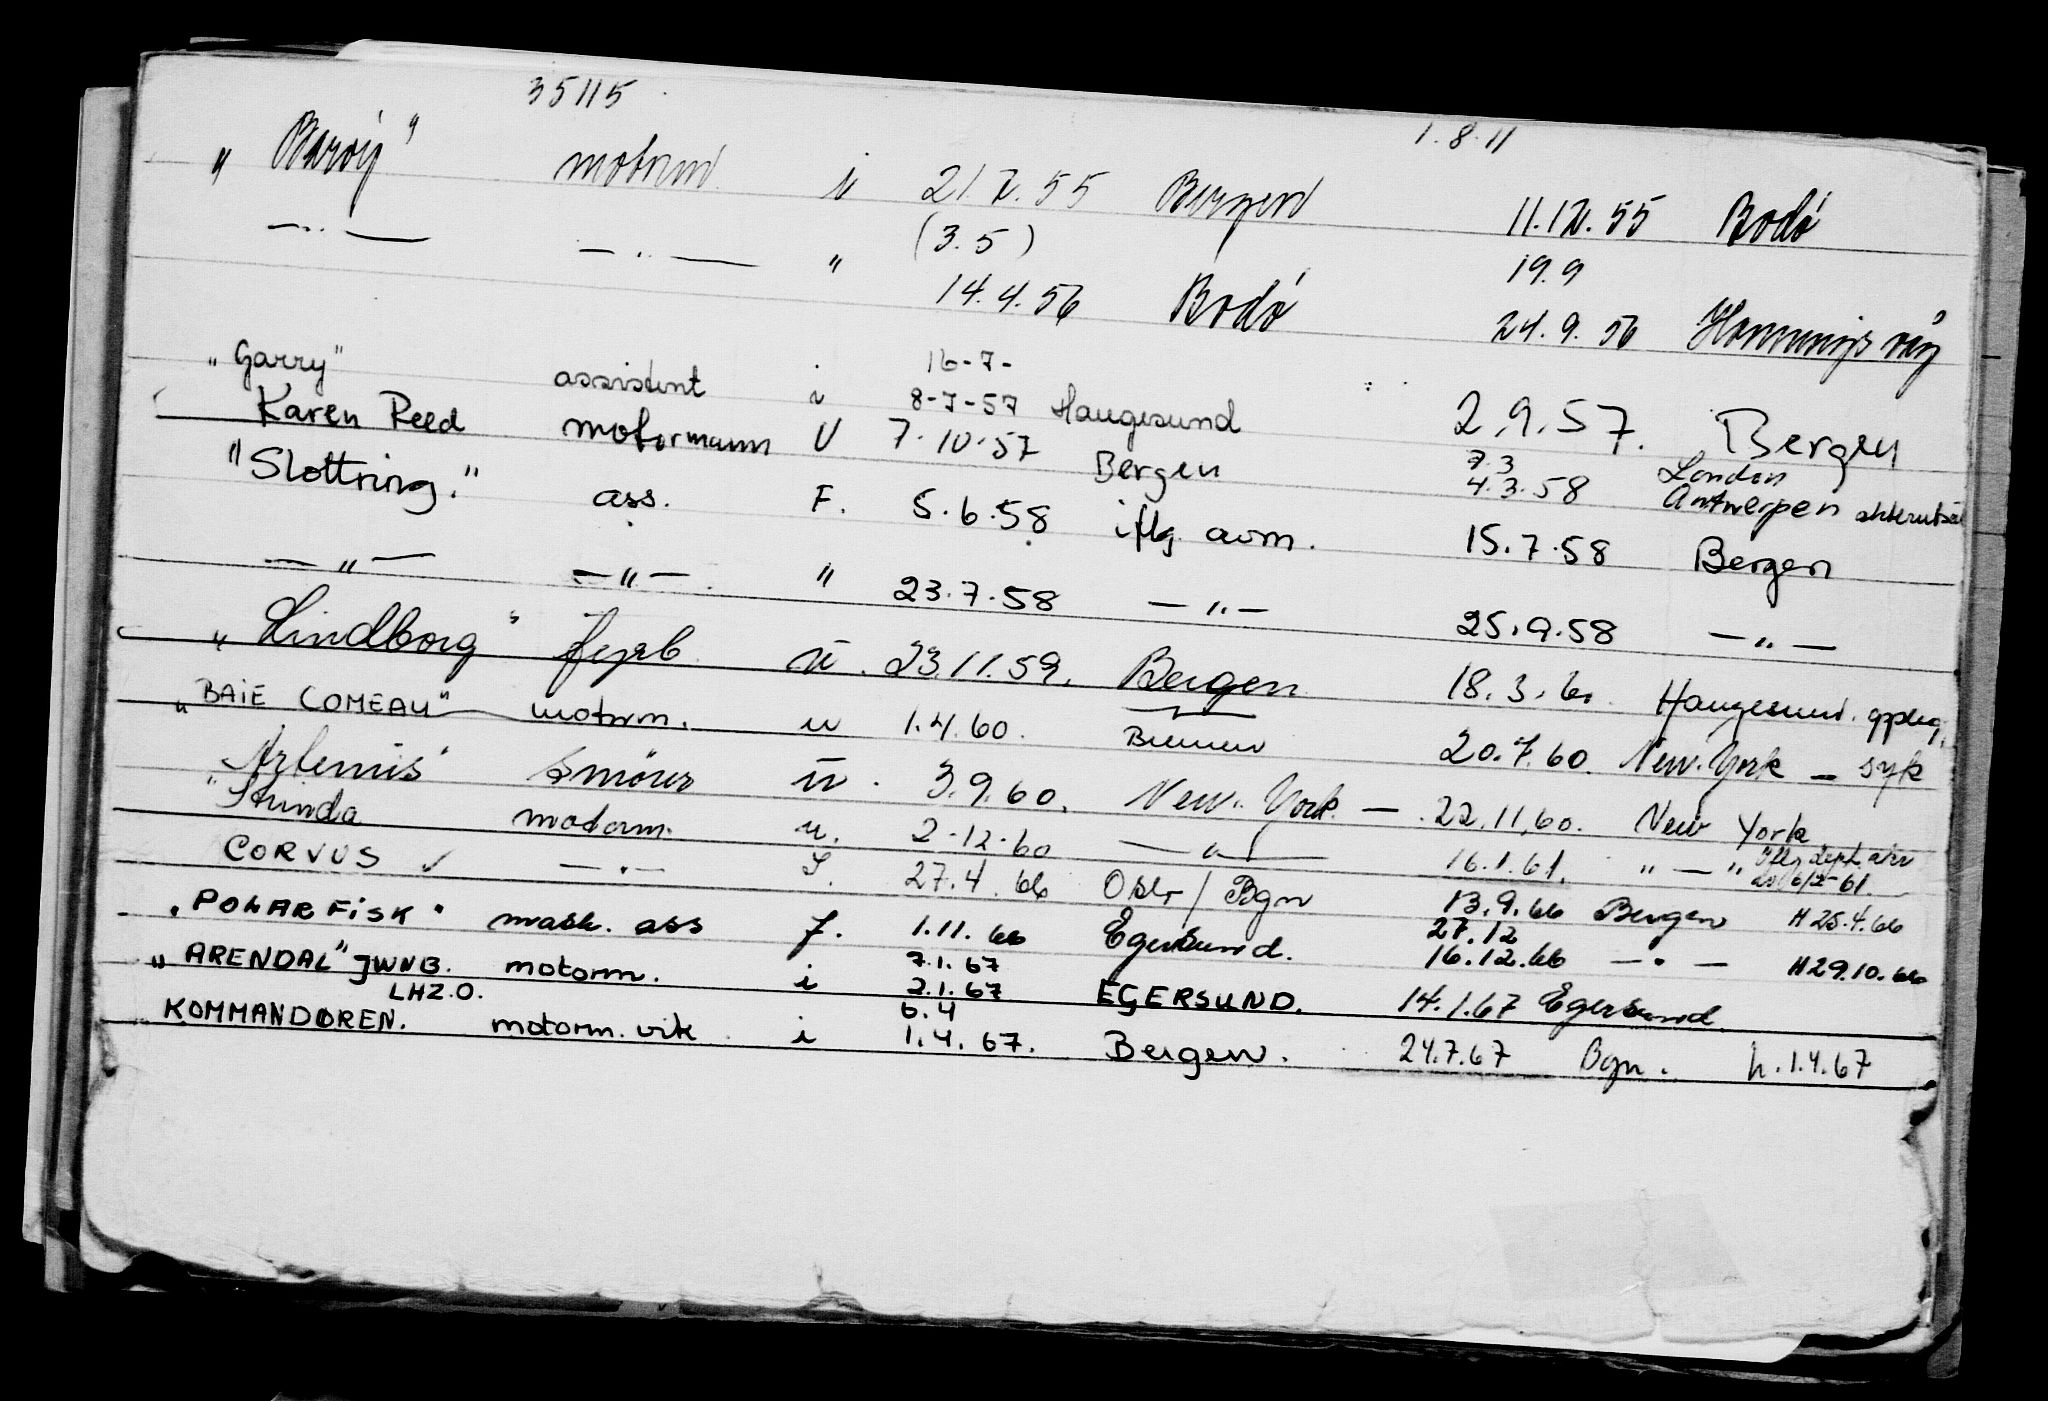 35115 1.8.11
"Barøy" motorm u 21.7.55 Bergen 11.12.55 Bodø
— " — — " — " (3.5) 19.9
14.4.56 Bodø 24.9.56
16-7-
"Garry" assistent i 8-7-57 Haugesund 2.9.57. Bergen
Karen Reed motormann U 7.10.57 Bergen 7.3 London
4.3.58 Antwerpen
"Slottring." ass. F. 5.6.58 iflg. avm. 15.7.58 Bergen
— " — — " — . " 23.7.58 — " — 25.9.58 — " —
"Lindborg" fyrb u. 23.11.59. Bergen 18.3.60 Haugesund.
"BAIE COMEAU" motorm. u 1.4.60. Bremen 20.7.60. New York — syk
"Artemis" smörer u. 3.9.60. New York — 22.11.60. New York
Strinda motorm. u. 2-12-60 — " — 16.1.61. " — "
CORVUS ✓ — " — S. 27.4.66 Oslo / Bgn 13.9.66 Bergen H 25.4.66
27.12
"POLARFISK" mask. ass f. 1.11.66 Egersund. 16.12.66 — " — H 29.10.66
7.1.67
"ARENDAL" JWNB. motorm. i 2.1.67 EGERSUND. 14.1.67 Egersund
LHZ.O. 6.4
KOMMANDØREN. motorm. vik i 1.4.67. Bergen. 24.7.67 Bgn. h. 1.4.67